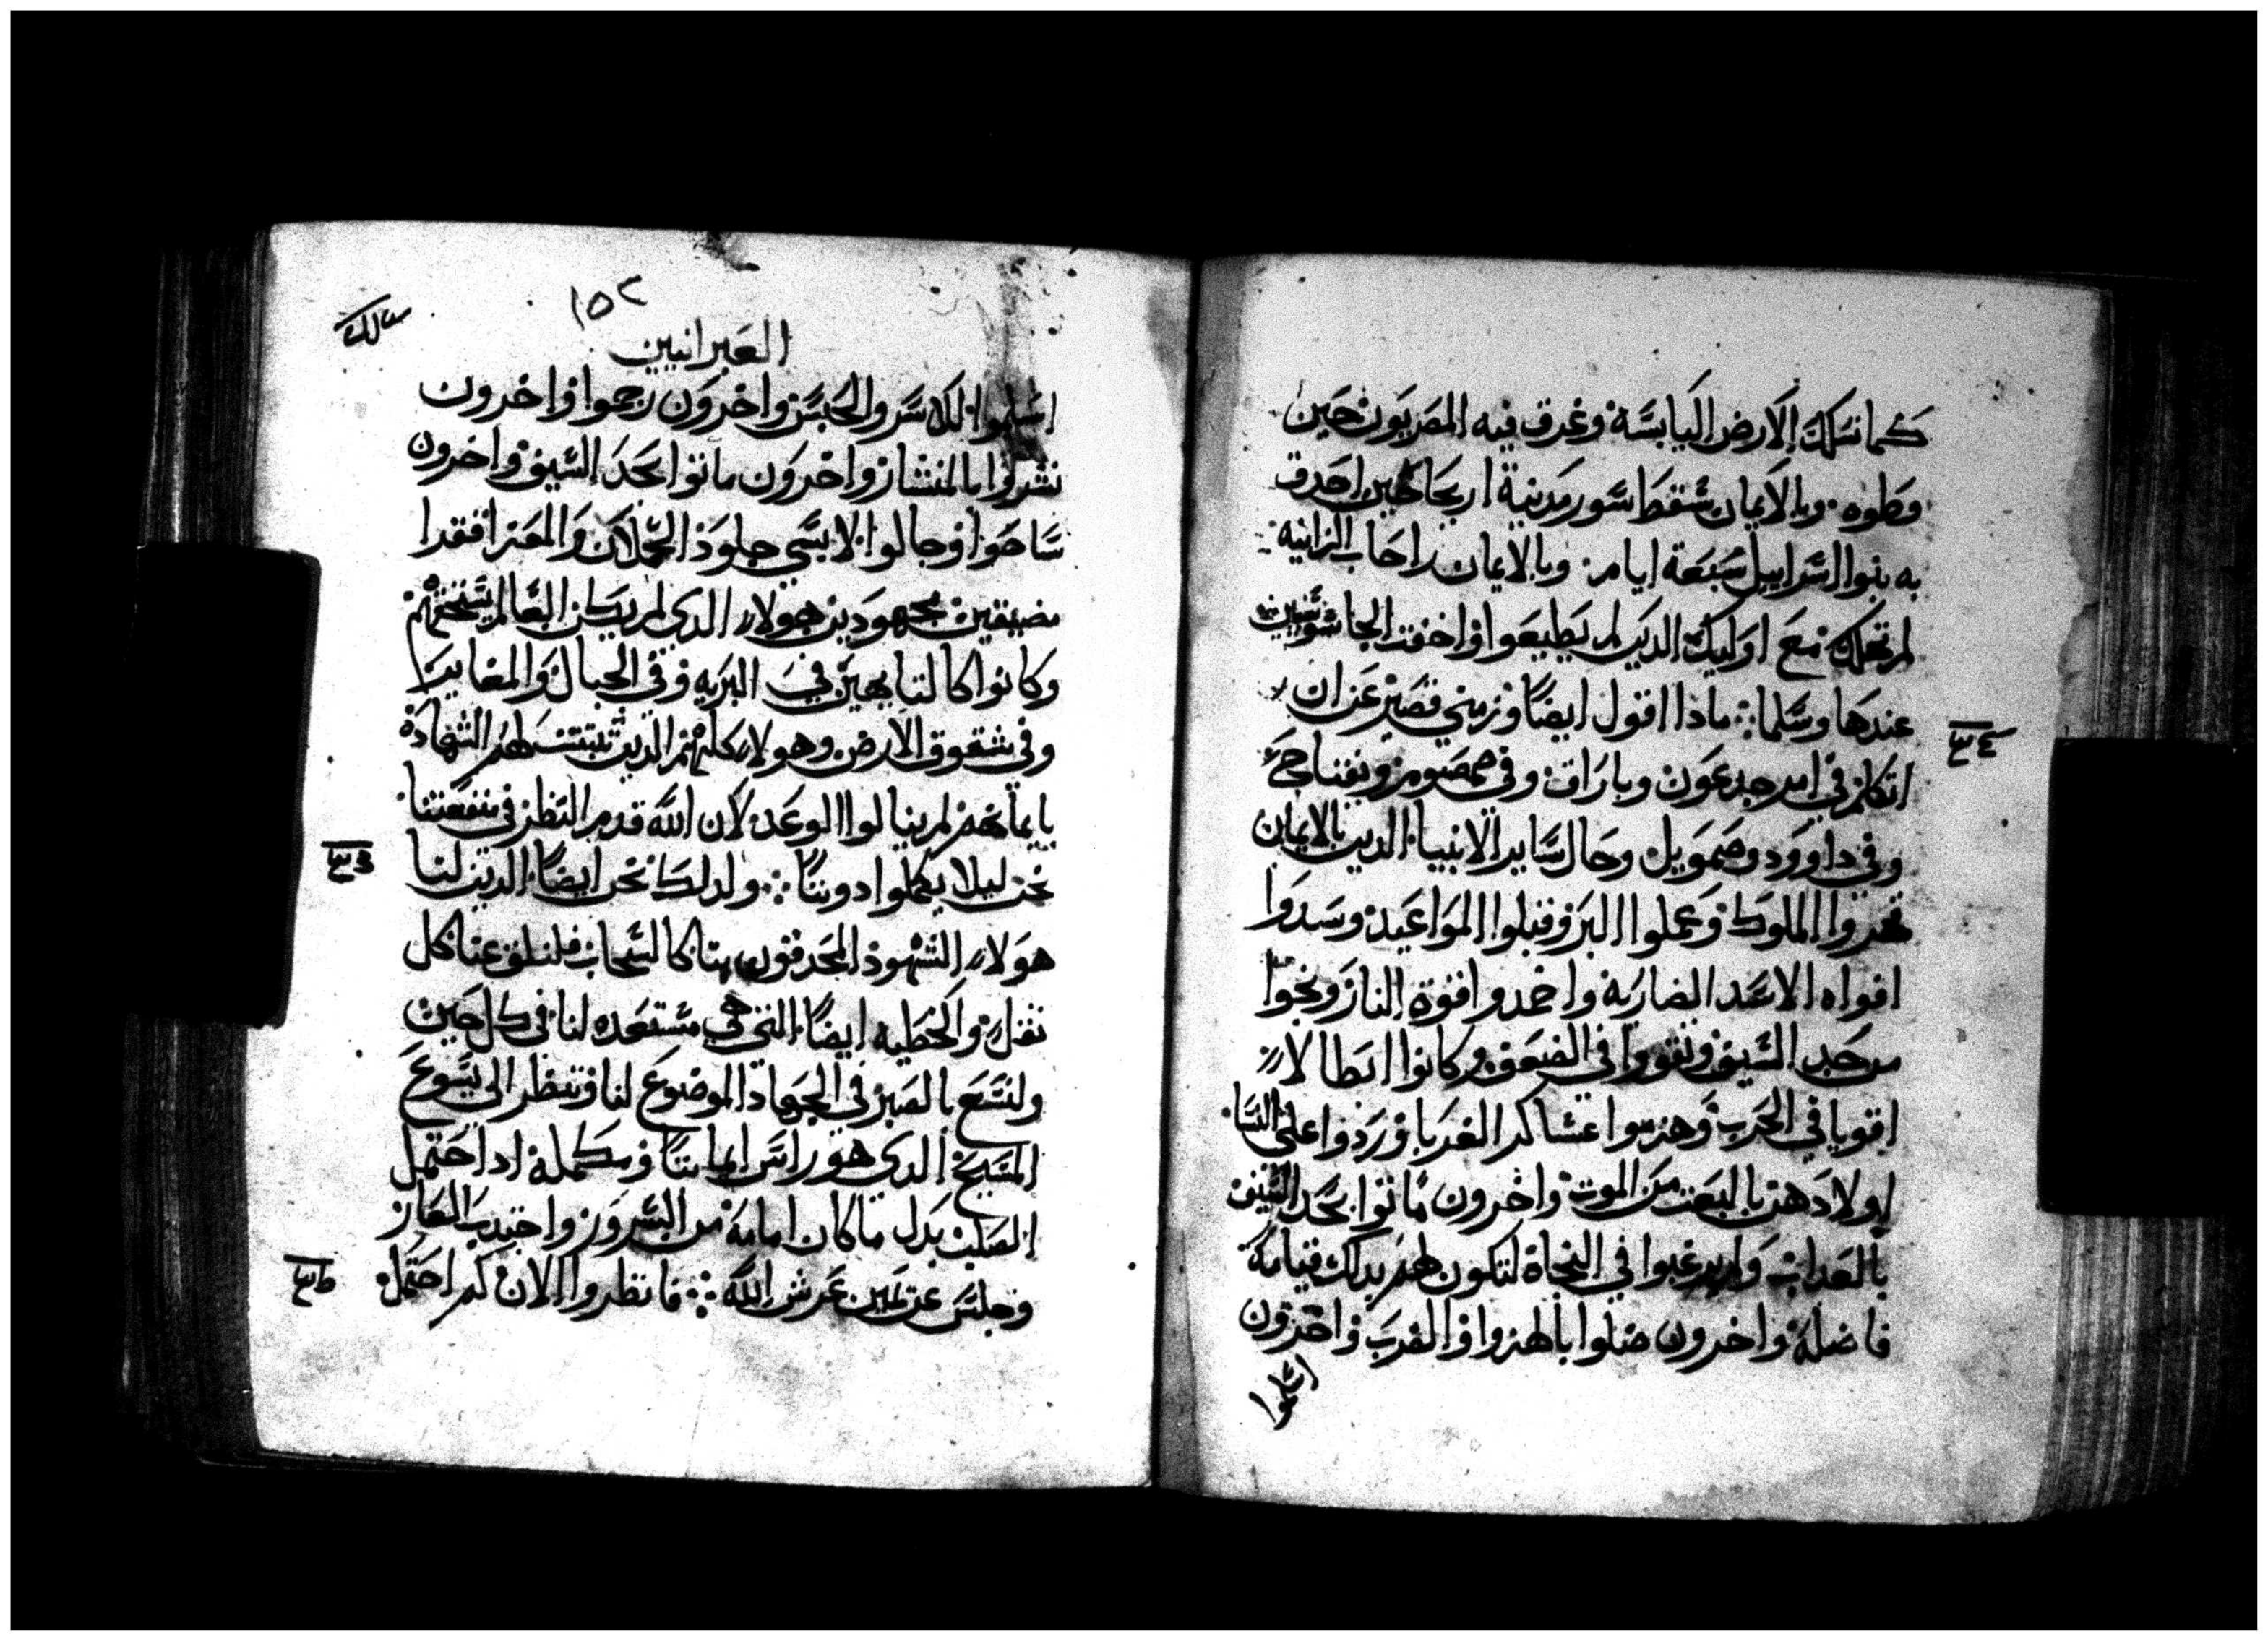 كما تسلك الارض اليابسه وغرق فيه المصريون حين
وطوه وبالايمان سقط سور مدينة اريحا حين احدق
به بنوا اسراييل سبعة ايام وبالايمان راحاب الزانيه
لم تهلك مع اوليك الدين لم يطيعوا واخفت الجاسوسين
عندها وسلما ماذا اقول ايضا وزمني قصير عن ان
اتكلم في امر جدعون وباراق وفي صمصوم ويفتاح
وفي داوود وصمويل وحال ساير الانبيا الدين بالايمان
قهروا الملوك وعملوا البر وقبلوا المواعيد وسدوا
افواه الاسد الضاريه واخمدوا قوة النار ونجوا
من حد السيف وتقووا في الضعف وكانوا ابطالا
اقويا في الحرب وهزموا عساكر الغربا وردوا على النسا
اولادهن بالبعت من الموت واخرون ماتوا بحد السيف
بالعداب ولم يرغبوا في النجاة لتكون لهم بدلك قيامة
فاضلة واخرون صلوا بالهزوا والضرب واخرون
اسلموا
١٥٢
العبرانيين
اسلموا للاسر والحبس واخرون رجموا واخرون
نشروا بالمنشار واخرون ماتوا بحد السيف واخرون
ساحوا وجالوا لابسي جلود الحملان والمعز افقرا
مضيقين مجهودين هولاء الدي لم يكن العالم يستحقهم
وكانوا كالتايهين في البريه وفي الجبال والمغاير
وفي شقوق الارض وهولاء كلهم الدين تبتت لهم الشهادة
بايمانهم لم ينالوا الوعد لان الله قدم النظر في منفعتنا
نحن ليلا يكملوا دوننا ولدلك نحن ايضا الدين لنا
هولاء الشهود المحدقون بنا كالسحاب فلنلق عنا كل
تقل والخطيه ايضا التي هي مستعده لنا في كل حين
ولنسع بالصبر في الجهاد الموضوع لنا وننظر الى يسوع
المسيح الدي هو راس ايماننا ومكمله اد احتمل
الصليب بدل ما كان امامه من السرور واحتدب العار
وجلس عن يمين عرش الله فانظروا الان كم احتمل